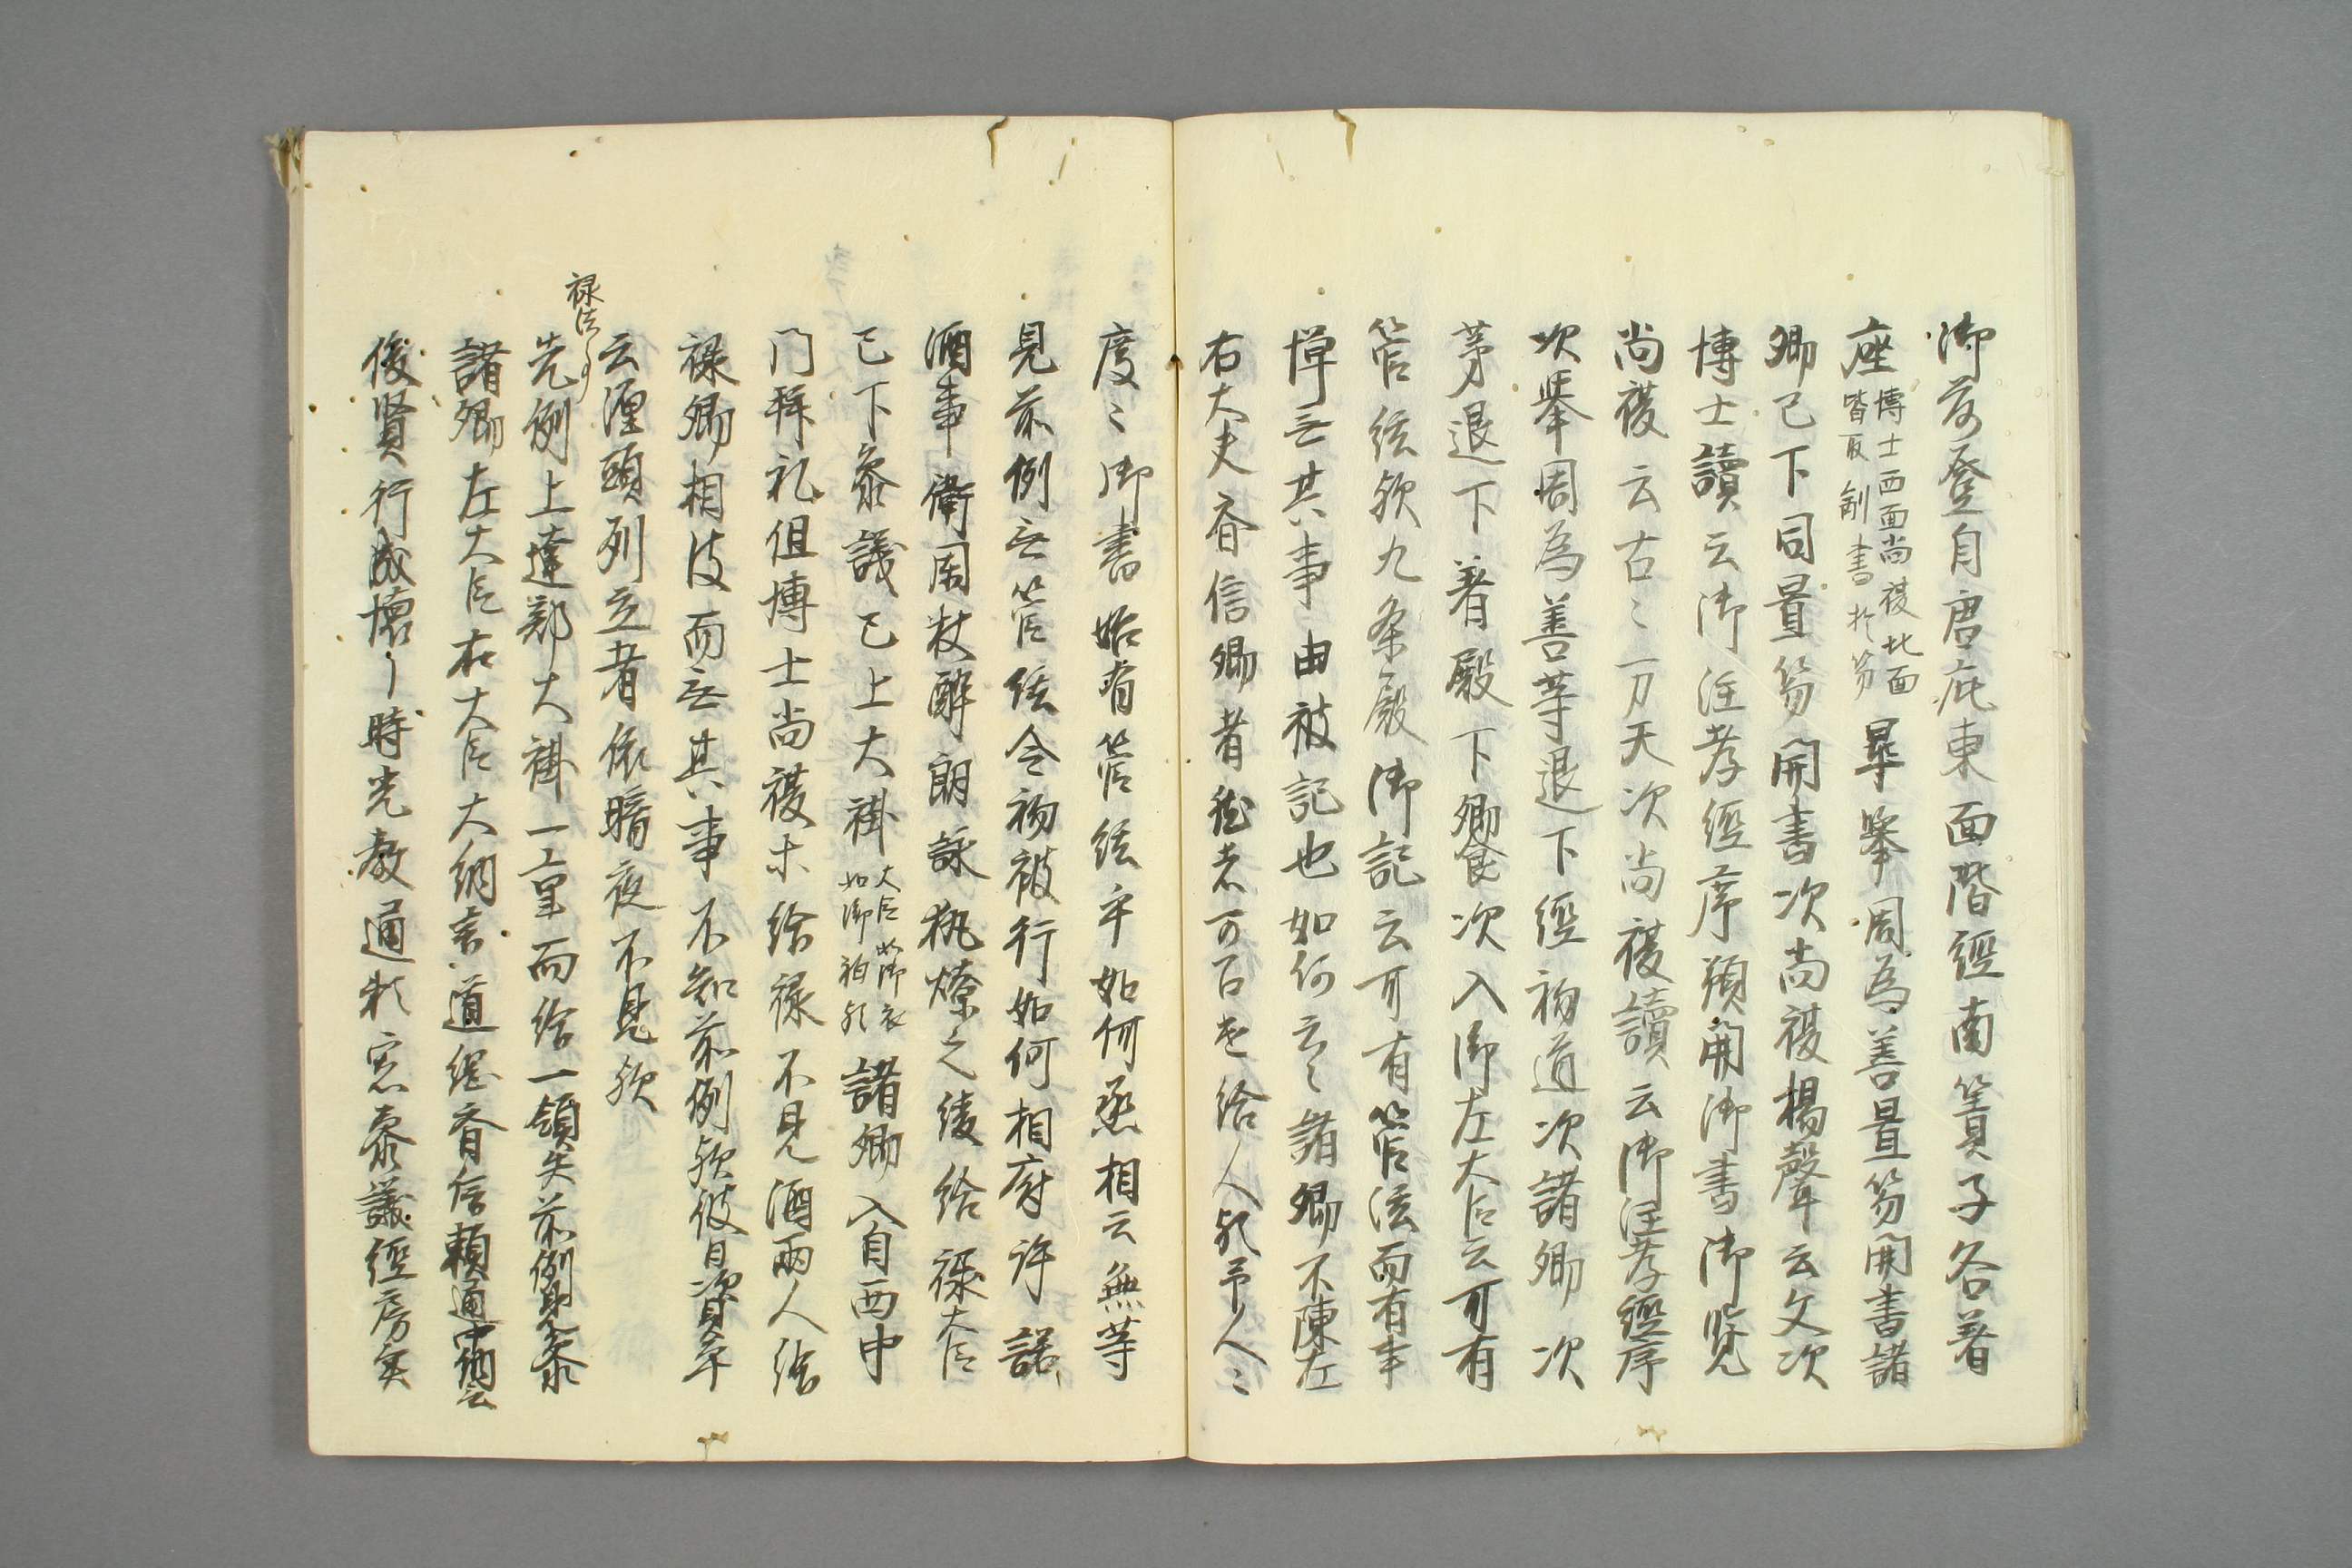 御前登自唐庇東面階經南簀子各著
座博士西面尚復北面
皆取副書於笏
畢擧周爲善置笏開書諸
卿已下同置笏開書次尚復揚聲云文次
博士讀云御注孝經序須開御書御覽
尚復云古〻一万天次尚復讀云御注孝經序
次擧周爲善等退下經初道次諸卿次
第退下著殿下卿食次入御左大臣云可有
管絃歟九条殿御記云可有管絃而有事
憚無其事由被記也如何云〻諸卿不陳左
右大夫斉信卿者 可
給人 人〻
度〻御書始有管絃乎如何丞相云無等
見前例無管絃令初被行如何相府許諾
酒事衛周数酔朗詠執燎之後給禄大臣
已下参議已上大褂大臣 御衣
如御袙歟
諸卿入自西中
門拜礼但博士尚復未給禄不見酒兩人給
禄卿相後而無其事不知前例歟彼日資平
云溼頭列立者依暗夜不見歟
禄法
先例上達部大褂一重而給一領失前例見参
諸卿左大臣右大臣大納言道綱斉信頼通中納言
俊賢行成懐〻時光教通 参議經房実